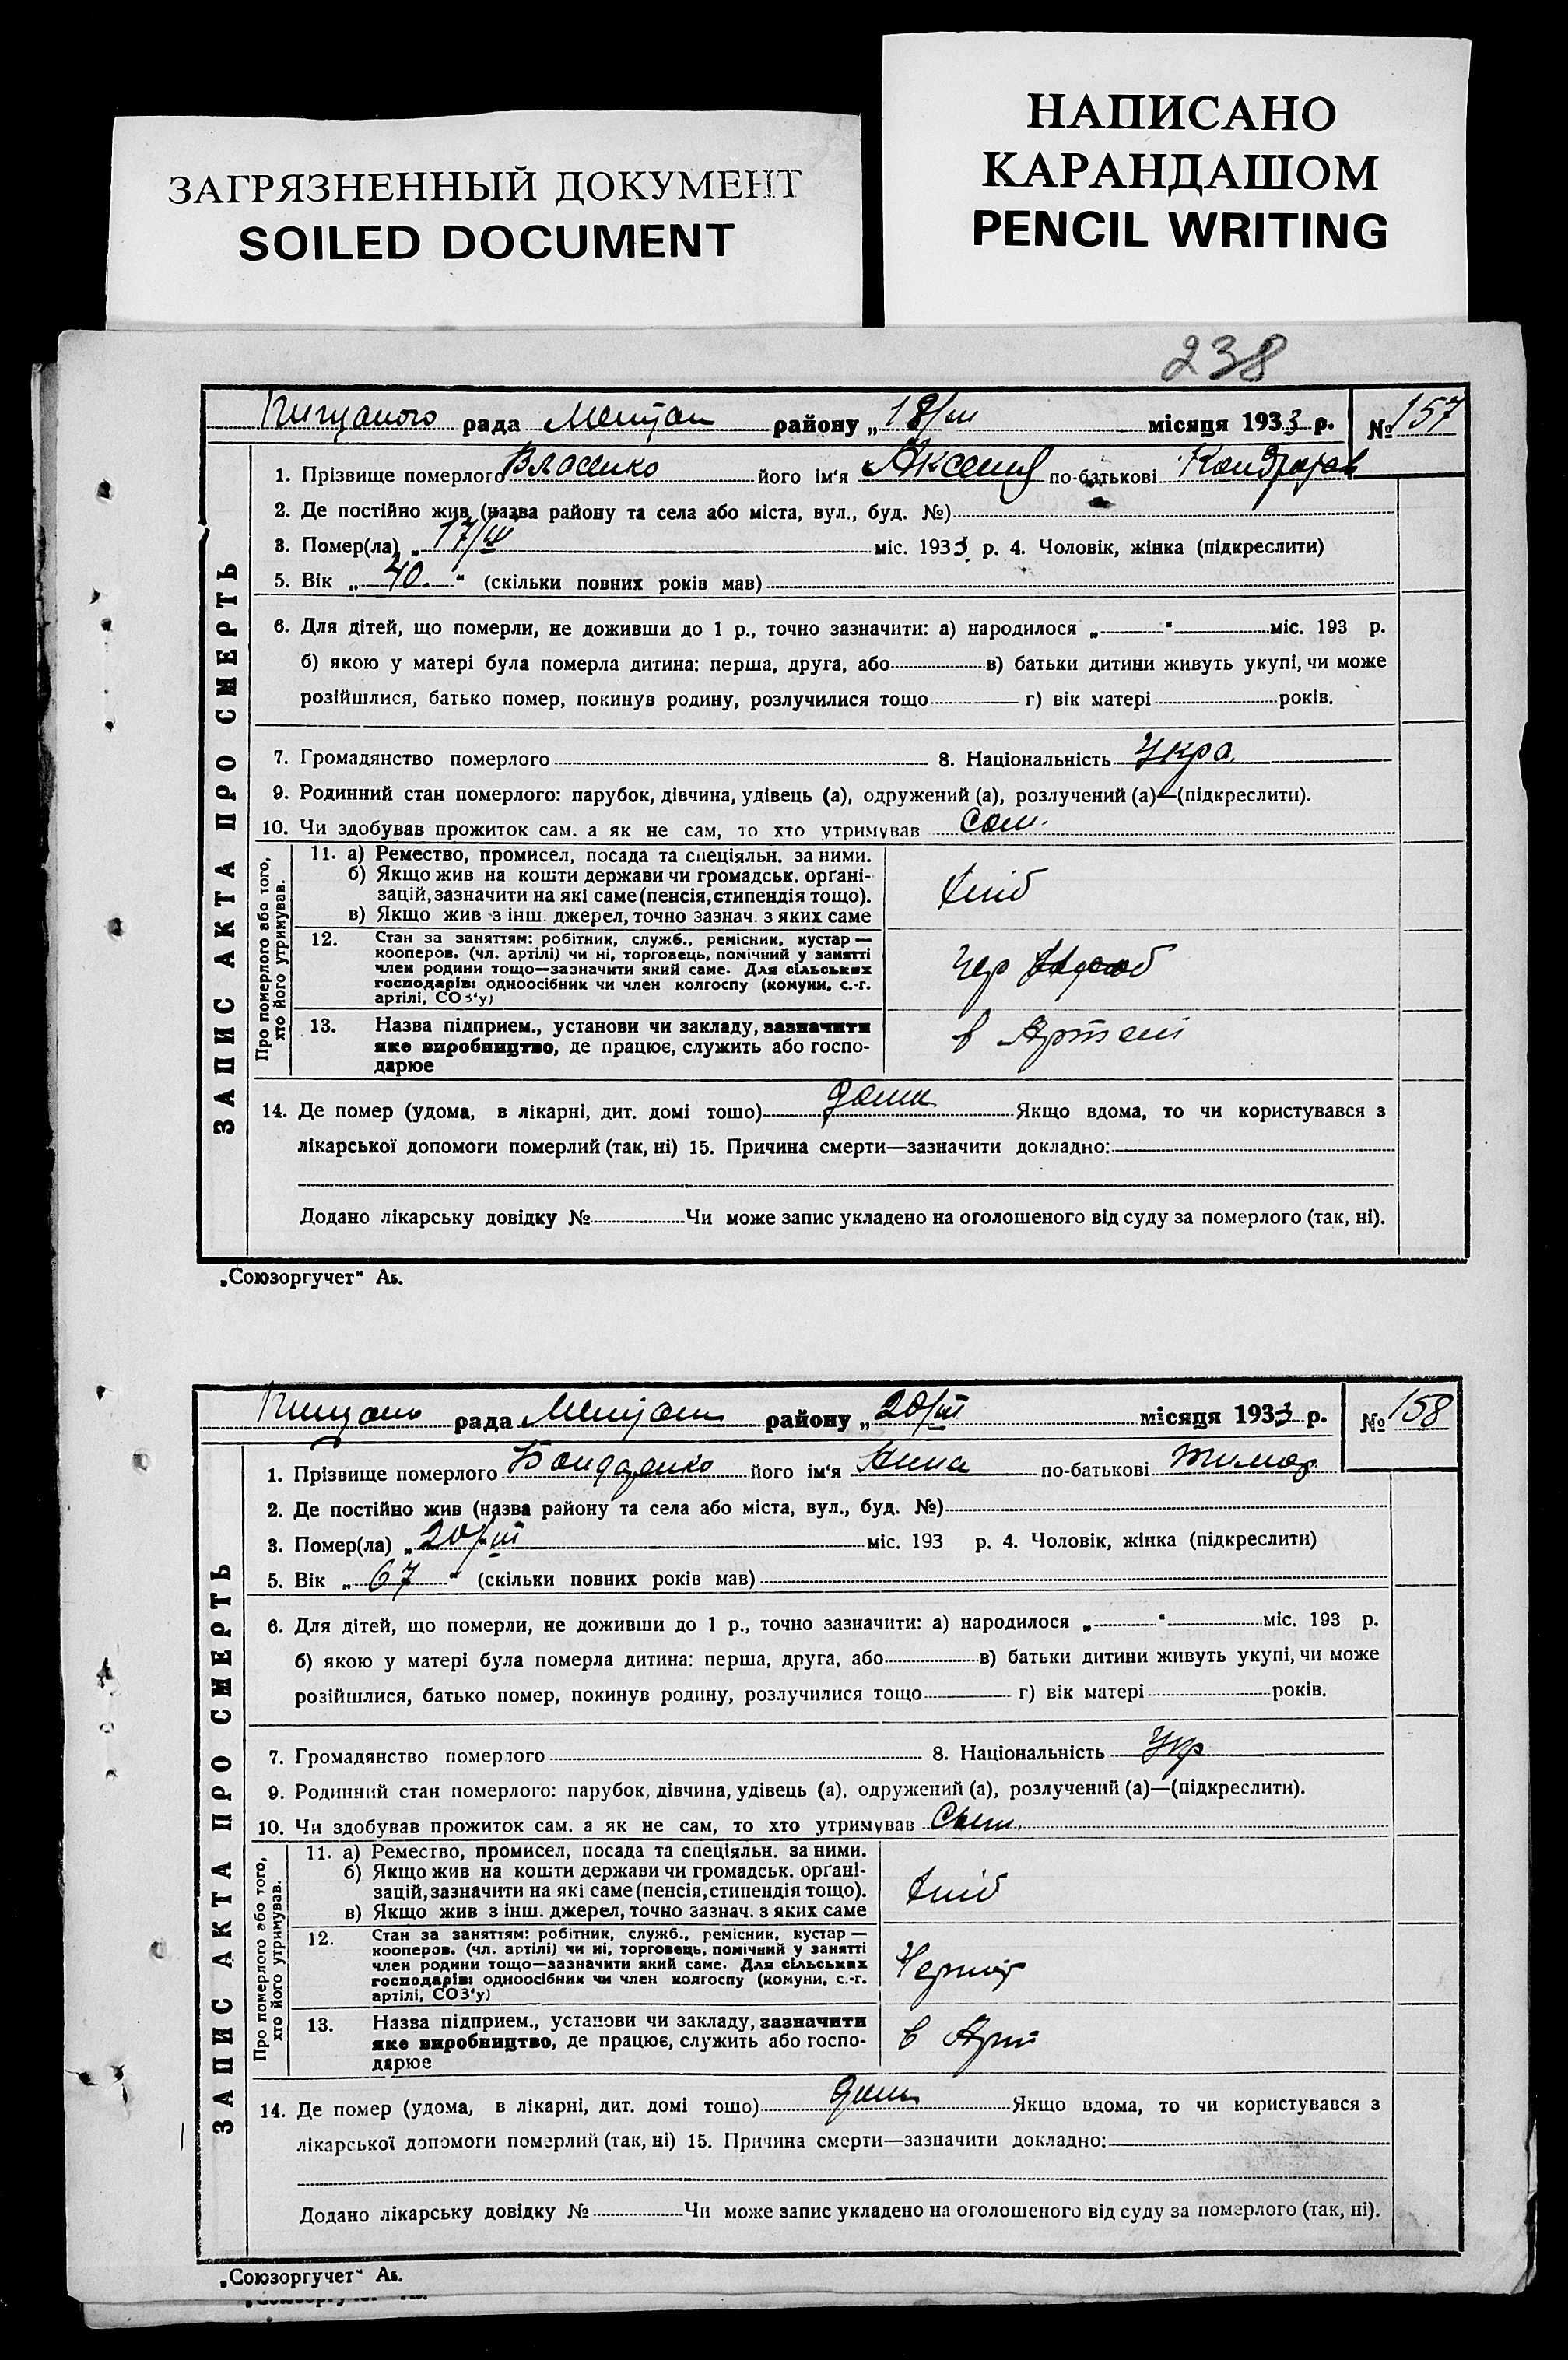 ЗАГРЯЗНЕННЫЙ ДОКУМЕНТ
SOILED DOCUMENT
НАПИСАНО
КАРАНДАШОМ
PENCIL WRITING
238
рада районy „18/III місяця 1933 р. № 157
ЗАПИС АКТА ПРО СМЕРТЬ
1. Прізвище померлого Власенко його ім'я по-батькові
2. Де постійно жив (назва району та села або міста, вул., буд. №)
3. Помер(ла) „17/III міс. 1933 р. 4. Чоловік, жінка (підкреслити)
5. Вік „40." (скільки повних років мав)
6. Для дітей, що померли, не доживши до 1 р., точно зазначити: а) народилося „ " міс. 193 р.
б) якою у матері була померла дитина: перша, друга, або в) батьки дитини живуть укупі, чи може
розійшлися, батько помер, покинув родину, розлучилися тощо г) вік матері років.
7. Громадянство померлого 8. Національність Укра.
9. Родинний стан померлого: парубок, дівчина, удівець (а), одружений (а), розлучений (а)—(підкреслити).
10. Чи здобував прожиток сам, а як не сам, то хто утримував Сам.
Про померлого або того,
хто його утримував.
11. а) Ремество, промисел, посада та спеціяльн. за ними.
б) Якщо жив на кошти держави чи громадськ. орґані-
зацій, зазначити на які саме (пенсія, стипендія тощо).
в) Якщо жив з інш. джерел, точно зазнач. з яких саме
хліб
12. Стан за заняттям: робітник, служб., ремісник, кустар—
кооперов. (чл. артілі) чи ні, торговець, помічний у занятті
член родини тощо—зазначити який саме. Для сільських
господарів: одноосібник чи член колгоспу (комуни, с.-г.
артілі, СОЗ'у)
13. Назва підприєм., установи чи закладу, зазначити
яке виробництво, де працює, служить або госпо-
дарює
в Артелі
14. Де помер (удома, в лікарні, дит. домі тошо) дома Якщо вдома, то чи користувався з
лікарської допомоги померлий (так, ні) 15. Причина смерти—зазначити докладно:
Додано лікарську довідку № Чи може запис укладено на оголошеного від суду за померлого (так, ні).
„Союзоргучет" Аъ.
рада району „20/III місяця 1933 р. № 158
ЗАПИС АКТА ПРО СМЕРТЬ
1. Прізвище померлого Бондаренко його ім'я Анна по-батькові Тимоф
2. Де постійно жив (назва району та села або міста, вул., буд. №)
3. Помер(ла) „20/III міс. 193 р. 4. Чоловік, жінка (підкреслити)
5. Вік „67" (скільки повних років мав)
6. Для дітей, що померли, не доживши до 1 р., точно зазначити: а) народилося „ " міс. 193 р.
б) якою у матері була померла дитина: перша, друга, або в) батьки дитини живуть укупі, чи може
розійшлися, батько помер, покинув родину, розлучилися тощо г) вік матері років.
7. Громадянство померлого 8. Національність Укр
9. Родинний стан померлого: парубок, дівчина, удівець (а), одружений (а), розлучений (а)—(підкреслити).
10. Чи здобував прожиток сам, а як не сам, то хто утримував Сам.
Про померлого або того,
хто його утримував.
11. а) Ремество, промисел, посада та спеціяльн. за ними.
б) Якщо жив на кошти держави чи громадськ. орґані-
зацій, зазначити на які саме (пенсія, стипендія тощо).
в) Якщо жив з інш. джерел, точно зазнач. з яких саме
хліб
12. Стан за заняттям: робітник, служб., ремісник, кустар—
кооперов. (чл. артілі) чи ні, торговець, помічний у занятті
член родини тощо—зазначити який саме. Для сільських
господарів: одноосібник чи член колгоспу (комуни, с.-г.
артілі, СОЗ'у)
13. Назва підприєм., установи чи закладу, зазначити
яке виробництво, де працює, служить або госпо-
дарює
в Арт
14. Де помер (удома, в лікарні, дит. домі тошо) дома Якщо вдома, то чи користувався з
лікарської допомоги померлий (так, ні) 15. Причина смерти—зазначити докладно:
Додано лікарську довідку № Чи може запис укладено на оголошеного від суду за померлого (так, ні).
„Союзоргучет" Аъ.